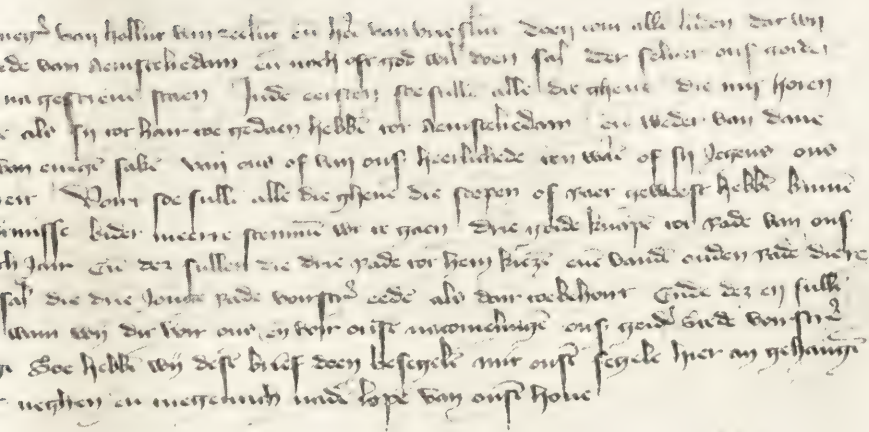 van hollant van zeelant en he van vrieslant doen cont allen luden dat wij
stede van Aemstelredam en noch oft god wil doen sal der selver onse goiden
na gescreven staen Inden eersten soe sullen alle die ghene die mit horen
als sij tot haer toe gedaen hebben tot Aemstelredam en weder van dane
van enigen saken van ons of van onser heerlichede ten waer of sij Jegens ons
Voirt soe sullen alle die ghene die scepen of raet geweest hebben binnen
bider meerre stemmen wt te gaen drie goide knapen tot Rade van onser
Jair En dez sullen die drie Rade tot hem kiezen enen vanden ouden Rade die
sal die drie Jonge Rade voirscr eede als dair toebehoirt Ende dez en sullen
want wij dit voir ons en voir onse nacomelingen onser goider stede voirscr
Soe hebben wij desen brief doen besegelen mit onsen segele hier an gehangen
neghen en negentich nade lope van onsen hove